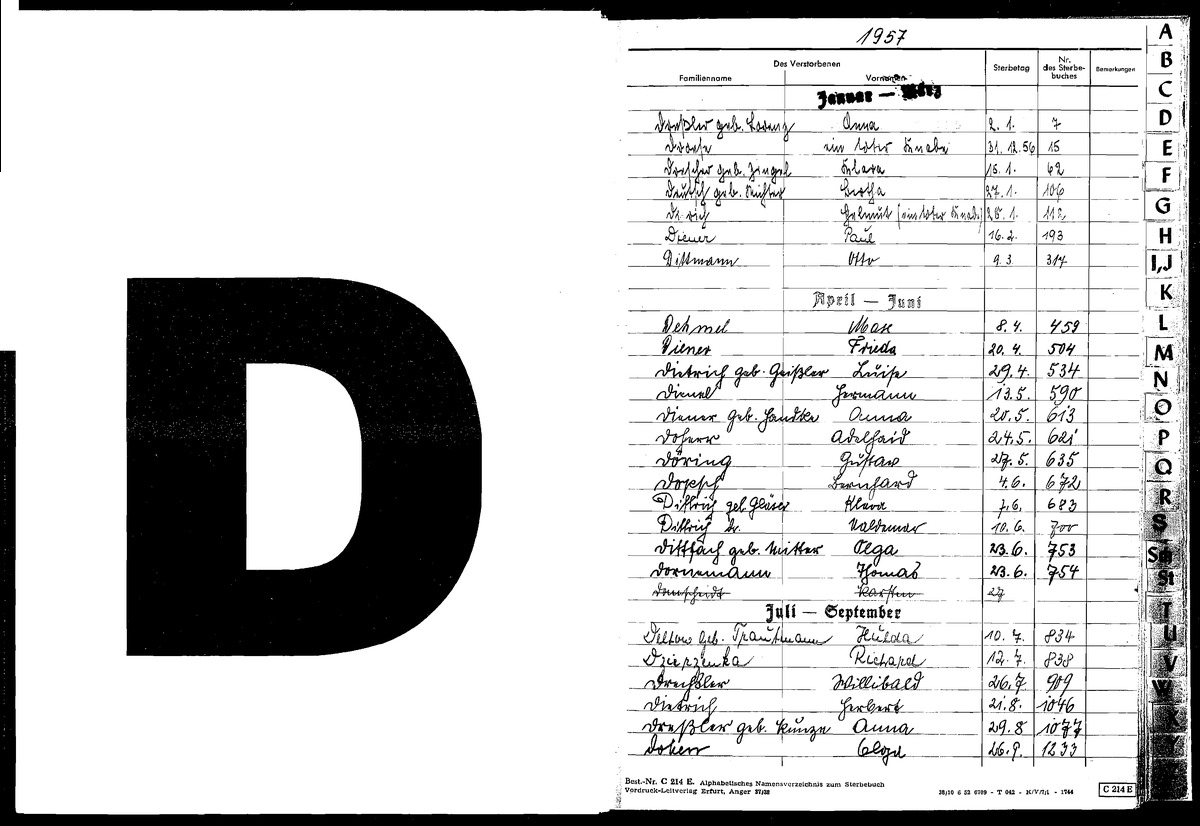 D
1957
Des Verstorbenen
Familienname Vornamen Sterbetag Nr. des Sterbebuches Bemerkungen
Januar — März
Dreßler geb. Lorenz Anna 2. 1. 7
ein toter Knabe 31. 12. 56 15
Drescher geb. Klara 15. 1. 62
Deutsch geb. Richter Bertha 27. 1. 106
Helmut (ein toter Knabe) 28. 1. 112
Diener Paul 16. 2. 193
Dittmann Otto 9. 3. 317
April — Juni
Dehmel Max 8. 4. 459
Diener Frieda 20. 4. 504
Dietrich geb. Geißler Luise 29. 4. 534
Dienel Hermann 13. 5. 590
Diener geb. Handke Anna 20. 5. 613
Doherr Adelhaid 24. 5. 621
Döring Gustav 27. 5. 635
Dopsch Bernhard 4. 6. 672
Dittrich geb. Gläser Klara 7. 6. 683
Dittrich Waldemar 10. 6. 700
geb. Olga 23. 6. 753
Dornemann Thomas 23. 6. 754
Damscheidt Karsten 27
Juli — September
geb. Trautmann Hulda 10. 7. 834
Dzierzenka Richard 12. 7. 838
Drechsler Willibald 26. 7 909
Dietrich Herbert 21. 8. 1046
Dreßler geb. Kunze Anna 29. 8 1077
Olga 26. 9. 1233
Best.-Nr. C 214 E. Alphabetisches Namensverzeichnis zum Sterbebuch
Vordruck-Leitverlag Erfurt, Anger 37/38
C 214 E
A
B
C
D
E
F
G
H
I,J
K
L
M
N
O
P
Q
R
S
Sch
St
T
U
V
W
X
Y